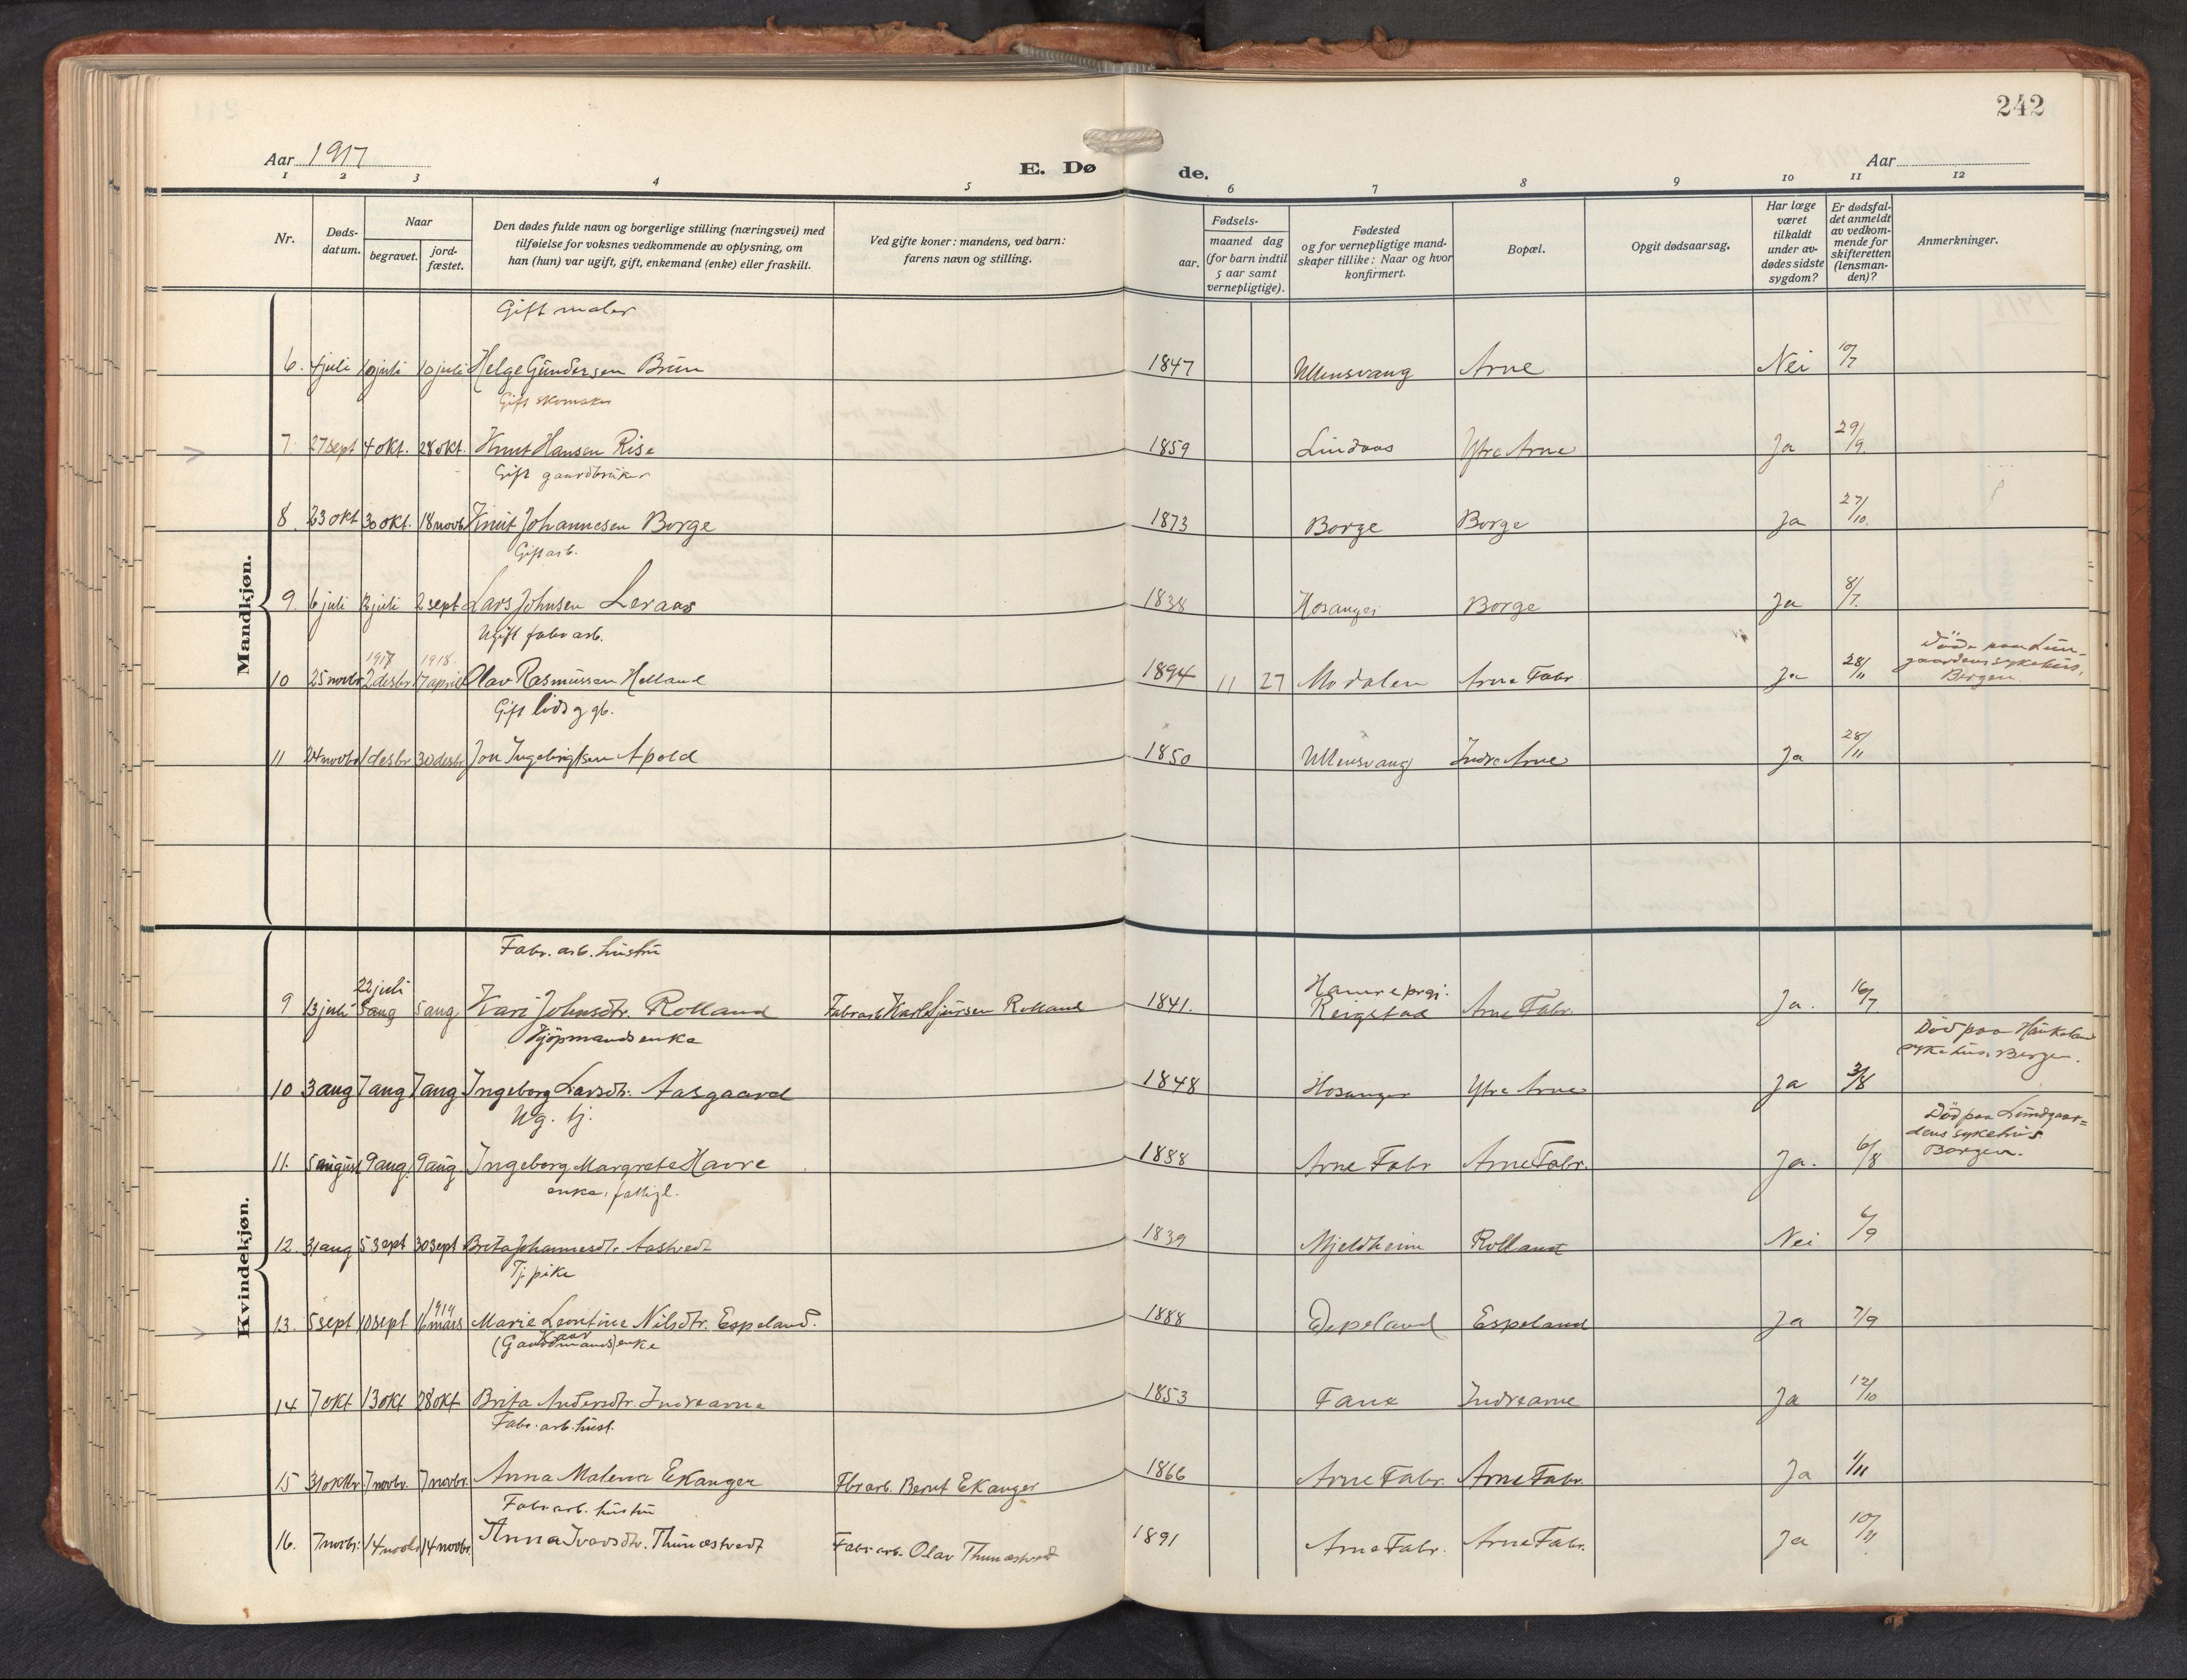 242
Aar 1917
E. Dø de.
Aar
1 2 3 4 5 6 7 8 9 10 11 12
Nr.
Døds-
datum.
Naar
begravet.
jord-
fæstet.
Den dødes fulde navn og borgerlige stilling (næringsvei) med
tilføielse for voksnes vedkommende av oplysning, om
han (hun) var ugift, gift, enkemand (enke) eller fraskilt.
Ved gifte koner: mandens, ved barn:
farens navn og stilling.
Fødsels-
aar.
maaned dag
(for barn indtil
5 aar samt
vernepligtige).
Fødested
og for vernepligtige mand-
skaper tillike: Naar og hvor
konfirmert.
Bopæl.
Opgit dødsaarsag.
Har læge
været
tilkaldt
under av-
dødes sidste
sygdom?
Er dødsfal-
det anmeldt
av vedkom-
mende for
skifteretten
(lensman-
den)?
Anmerkninger.
Mandkjøn.
Gift maler
6. 4 juli 10 juli 10 juli Helge Gundersen Brun 1847 Ullensvang Arne Nei 10/7
Gift skomaker
7 27 sept 4 okt. 28 okt. Knut Hansen Rise 1859 Lindaas Ytre Arne Ja 29/9.
Gift gaardbruker
8 23 okt 30 okt. 18 novb Knut Johannesen Borge 1873 Borge Borge Ja 27/10.
Gift arb.
9. 6 juli juli 2 sept Lars Johnsen Leraas 1838 Hosanger Borge Ja 8/7.
Ugift fabr arb.
1917 1918.
10 25 novbr 2 desbr 7 april Olav Rasmussen Helland 1894 11 27 Modalen Arne Fabr Ja 28/11
Död paa Lun-
gaardens sykehus,
Bergen.
Gift gb.
11 24 novbr 1 desbr 30 desbr Jon Ingebrigtsen Apold 1850 Ullensvang Indre Arne Ja 28/11
Kvindekjøn.
Fabr. arb. hustru
22 juli
9 13 juli 5 aug 5 aug Kari Johnsdtr. Rolland Fabr arb Karl Sjursen Rolland 1841. Hamre prgj. Reigstad Arne Fabr. Ja. 16/7
Kjöpmands enke
10 3 aug 7 aug 7 aug Ingeborg Larsdtr. Aasgaard 1848 Hosanger Ytre Arne Ja 3/8
Död paa Haukeland
sykehus, Bergen.
Ug. tj.
11. 5 august 9 aug. 9 aug Ingeborg Margrete Havre 1888 Arne Fabr Arne Fabr. Ja. 6/8
Död paa Lundgaar=
dens sykehus.
Bergen.
enke, fattigl.
12. 31 aug 5 sept 30 sept Brita Johannesdtr. Aastvedt 1839 Mjeldheim Rolland Nei 6/9
Tj pike
1919
13. 5 sept 10 sept 16 mars Marie Leontine Nilsdtr. Espeland. 1888 Espeland Espeland Ja 7/9
Kaar
(Gaardmands) enke
14 7 okt 13 okt 28 okt Brita Andersdtr. Indrearne 1853 Fane Indrearne Ja 12/10
Fabr. arb. hust.
15 31 oktbr 7 novbr. 7 novbr. Anna Malena Ekanger Fbr arb. Bernt Ekanger 1866 Arne Fabr. Arne Fabr. Ja 1/11
Fabr arb. hustru
16. 7 novbr. 14 novb 14 novbr Anna Ivarsdtr. Thunestvedt Fabr arb. Olav Thunestvedt 1891 Arne Fabr. Arne Fabr. Ja 10/11